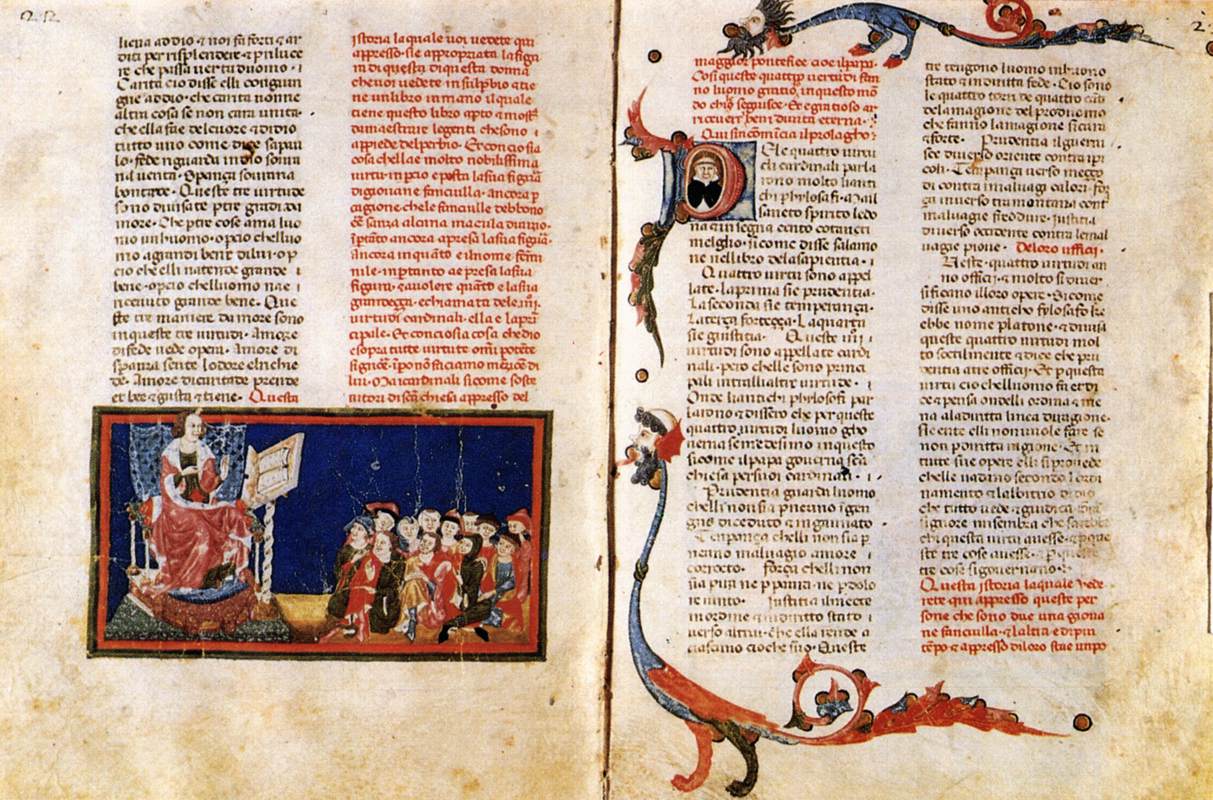 lieva ad dio ⁊ noi fa forti ⁊ ar
diti per risplendente ⁊ priluce
re che passa vertu duomo ·
Carita cio disse elli congiun
gne ad dio · che carita nonne
altra cosa se non cara unita ·
che ella sue del cuore ⁊ di dio
tutto uno come dice sapau
lo · fede riguarda in dio soma
na venta · Spança sonirana
bontade · Queste tre virtude
sono divisate ptre gradi da
more · Che ptre cose ama luo
mo un huomo · o pcio chelluo
mo agrandi bene di lui · o p
cio che elli natende grande
bene · o pcio chelluomo nae
ricevuto grande bene · Que
ste tre maniere da more sono
in queste tre virtudi · Amore
di fede vede opera · Amore di
spanza sente lodore elrichie
de · Amore di caritade prende
et bee ⁊ gusta ⁊ tiene · Questa
istoria la quale voi vedete qui
appresso · sie appropriata la figu
ra di questa di questa donna
che voi vedete in sulpbio a tie
ne un libro in mano il quale
tiene questo libro apto ⁊ most
damaestrare le genti che sono
appiede del perbio · Et conciosia
cosa chella e molto nobilissima
virtu in pcio e posta la sua figura
di giovane fanciulla · ancora p
cagione che le fanciulle debbono
ee sanza alcuna macula di vitio ·
iptanto ancora apresa la sua figura ·
ancora in quanto e il nome femi
nile · in ptanto ae presa la sua
figura · ⁊ a volere quanto e la sua
grandeçça · echiamata dele iiii
virtudi cardinali · ella e la pri
cipale · Et conciosia cosa che dio
e sopra tutte virtute omni potente
signore · ipo non faciamo
lui · Ma i cardinali si come soste
nitori di sca chiesa appresso del
maggior pontefice cioe il papa ·
Cosi queste quattro vertudi fan
no luomo gratio in questo mo
do che seguisce · Et e gratioso ar
ricever ben di vita eterna ·
Qui sin comincia il prolagho
Dele quattro virtu
di cardinali parla
rono molto li anti
chi philosafi · Mail
sancto spirito ledo
na ansegna cento cotanti
melglio · si come disse salamo
ne nel libro de la sapientia ·
Quattro virtu sono appel
late · la prima sie prudentia ·
La seconda sie temperança ·
La terça forteçça · La quarta
sie giustitia · Queste iiii
virtudi sono appellate cardi
nali · pero chelle sono princi
pali intra llaltre virtude ·
Onde li antichi philosafi par
larono ⁊ dissero che per queste
quattro virtudi luomo gho
verna se medesimo in questo
sicome il papa governa sca
chiesa per suoi cardinali ·
Prudentia guarda luomo
chelli non sia pneuno ingen
gno diceduto ⁊ in gannato ·
Tenpança chelli non sia p
neuno malvagio amore
corrotto · força chelli non
sia pur ne p paura · ne p dolo
re vinto · Justitia il mecte
in ordine ⁊ in diritto stato
verso altrui · che ella rende a
ciascuno cioe che suo · Queste
tre tengono luomo in buono
stato ⁊ in diritta fede · Cio sono
le quattro torri de quattro can
ti de la magione del prodhuomo
che fanno la magione sicura
⁊ forte · Prudentia il guerni
sce diverso oriente contra ipi
coli · Tenpança verso meçço
di contra i malvagi calori · for
ça inverso tramontana contra
malvagie freddure · justitia
diverso occidente contra le mal
vagie piove · De loro uffici ·
Queste · quattro virtudi an
no offici · ⁊ molto si diver
sificano illoro opere · Sicome
disse uno anticho fylosafo kre
ebbe nome platone · ⁊ divisa
queste quattro virtudi mol
to soctilmente ⁊ dice che pru
dentia a tre offici · Et p questa
virtu cio chelluomo fa et di
ce ⁊ pensa ondelli ordina ⁊ me
na a la diritta linea di ragione ·
Siccente elli non vuole fare se
non p diritta ragione · Et in
tutte sue opere elli si provede
chelle vadino secondo lordi
namento ⁊ lalbitrio di dio
che tutto vede ⁊ giudica
signore misembra che sarebbe
chi questa virtu avesse · ⁊ p que
ste tre cose avesse · ⁊ p queste
tre cose si governasse ·
Questa istoria la quale vede
rete qui appresso queste per
sone che sono due una giova
ne fanciulla · ⁊ laltra e dipin
tepo · ⁊ appresso di loro stae un po